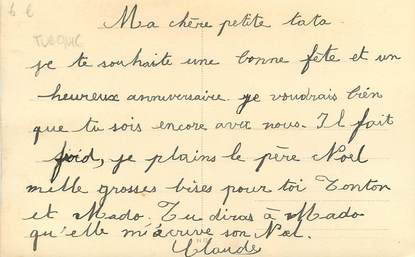 Ma chère petite tata
je te souhaite une bonne fête et un
heureux anniversaire. je voudrais bien
que tu sois encore avec nous. Il fait
froid, je plains le père Noel
mille grosses bises pour toi Tonton
et Mado. Tu diras à Mado
qu'elle m'écrive son Noel.
Claude